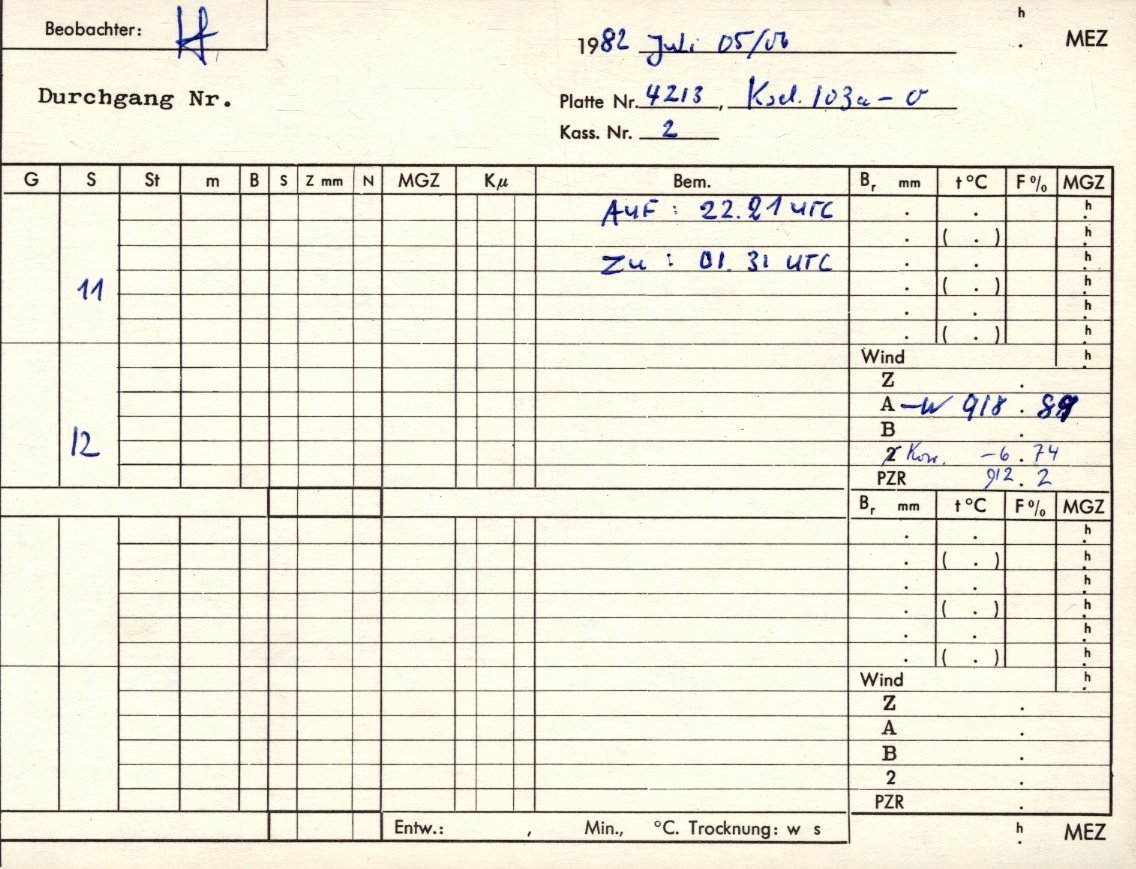 Beobachter: Hf
h
1982 Juli 05/06 . MEZ
Durchgang Nr.
Platte Nr. 4213, Kod. 103a-O
Kass. Nr. 2
G S St m B S Z mm N MGZ Kµ Bem. Br mm t °C F % MGZ
AUF : 22.21 UTC . . h
. ( . ) h
ZU : 01.31 UTC . . h
11 . ( . ) h
. . h
. ( . ) h
Wind h
Z .
A -W 918 . 89
B .
12 2 Korr. -6 . 74
PZR 912 . 2
Br mm t °C F % MGZ
. . h
. ( . ) h
. . h
. ( . ) h
. . h
. ( . ) h
Wind h
Z .
A .
B .
2 .
PZR .
Entw.: , Min., °C. Trocknung: w s h . MEZ